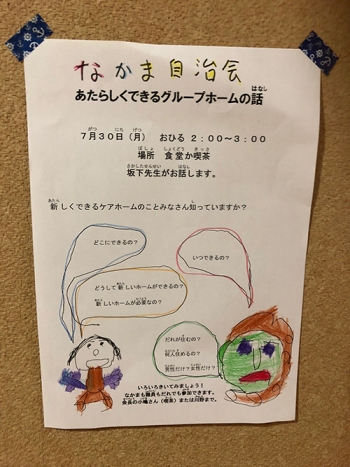 なかま自治会
あたらしくできるグループホームの話
はなし
7月30日（月） おひる 2：00～3：00
がつ にち げつ
場所 食堂か喫茶
ばしょ しょくどう きっさ
坂下先生がお話します。
さかしたせんせい はな
新しくできるケアホームのことみなさん知っていますか？
あたら し
どこにできるの？
いつできるの？
どうして新しいホームができるの？
新しいホームが必要なの？
だれが住むの？
何人住めるの？
男性だけ？女性だけ？
いろいろきいてみましょう！
なかまも職員もだれでも参加できます。
会長の小嶋さん（喫茶）または川野まで。